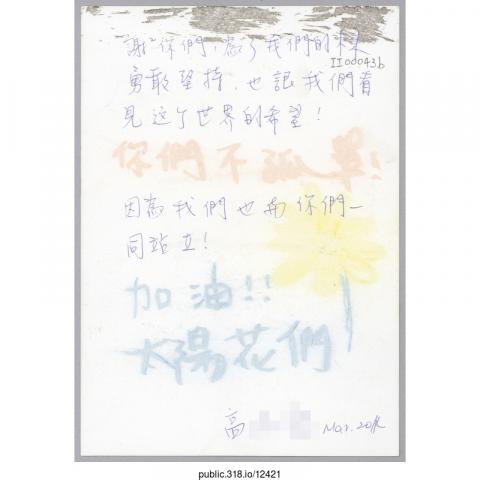 謝謝你們,為了我們的未來
II00043b
勇敢堅持,也讓我們看
見這个世界的希望!
你們不孤單!
因為我們也與你們一
同站立!
加油!!
太陽花們
高
Mar. 20th
public.318.io/12421